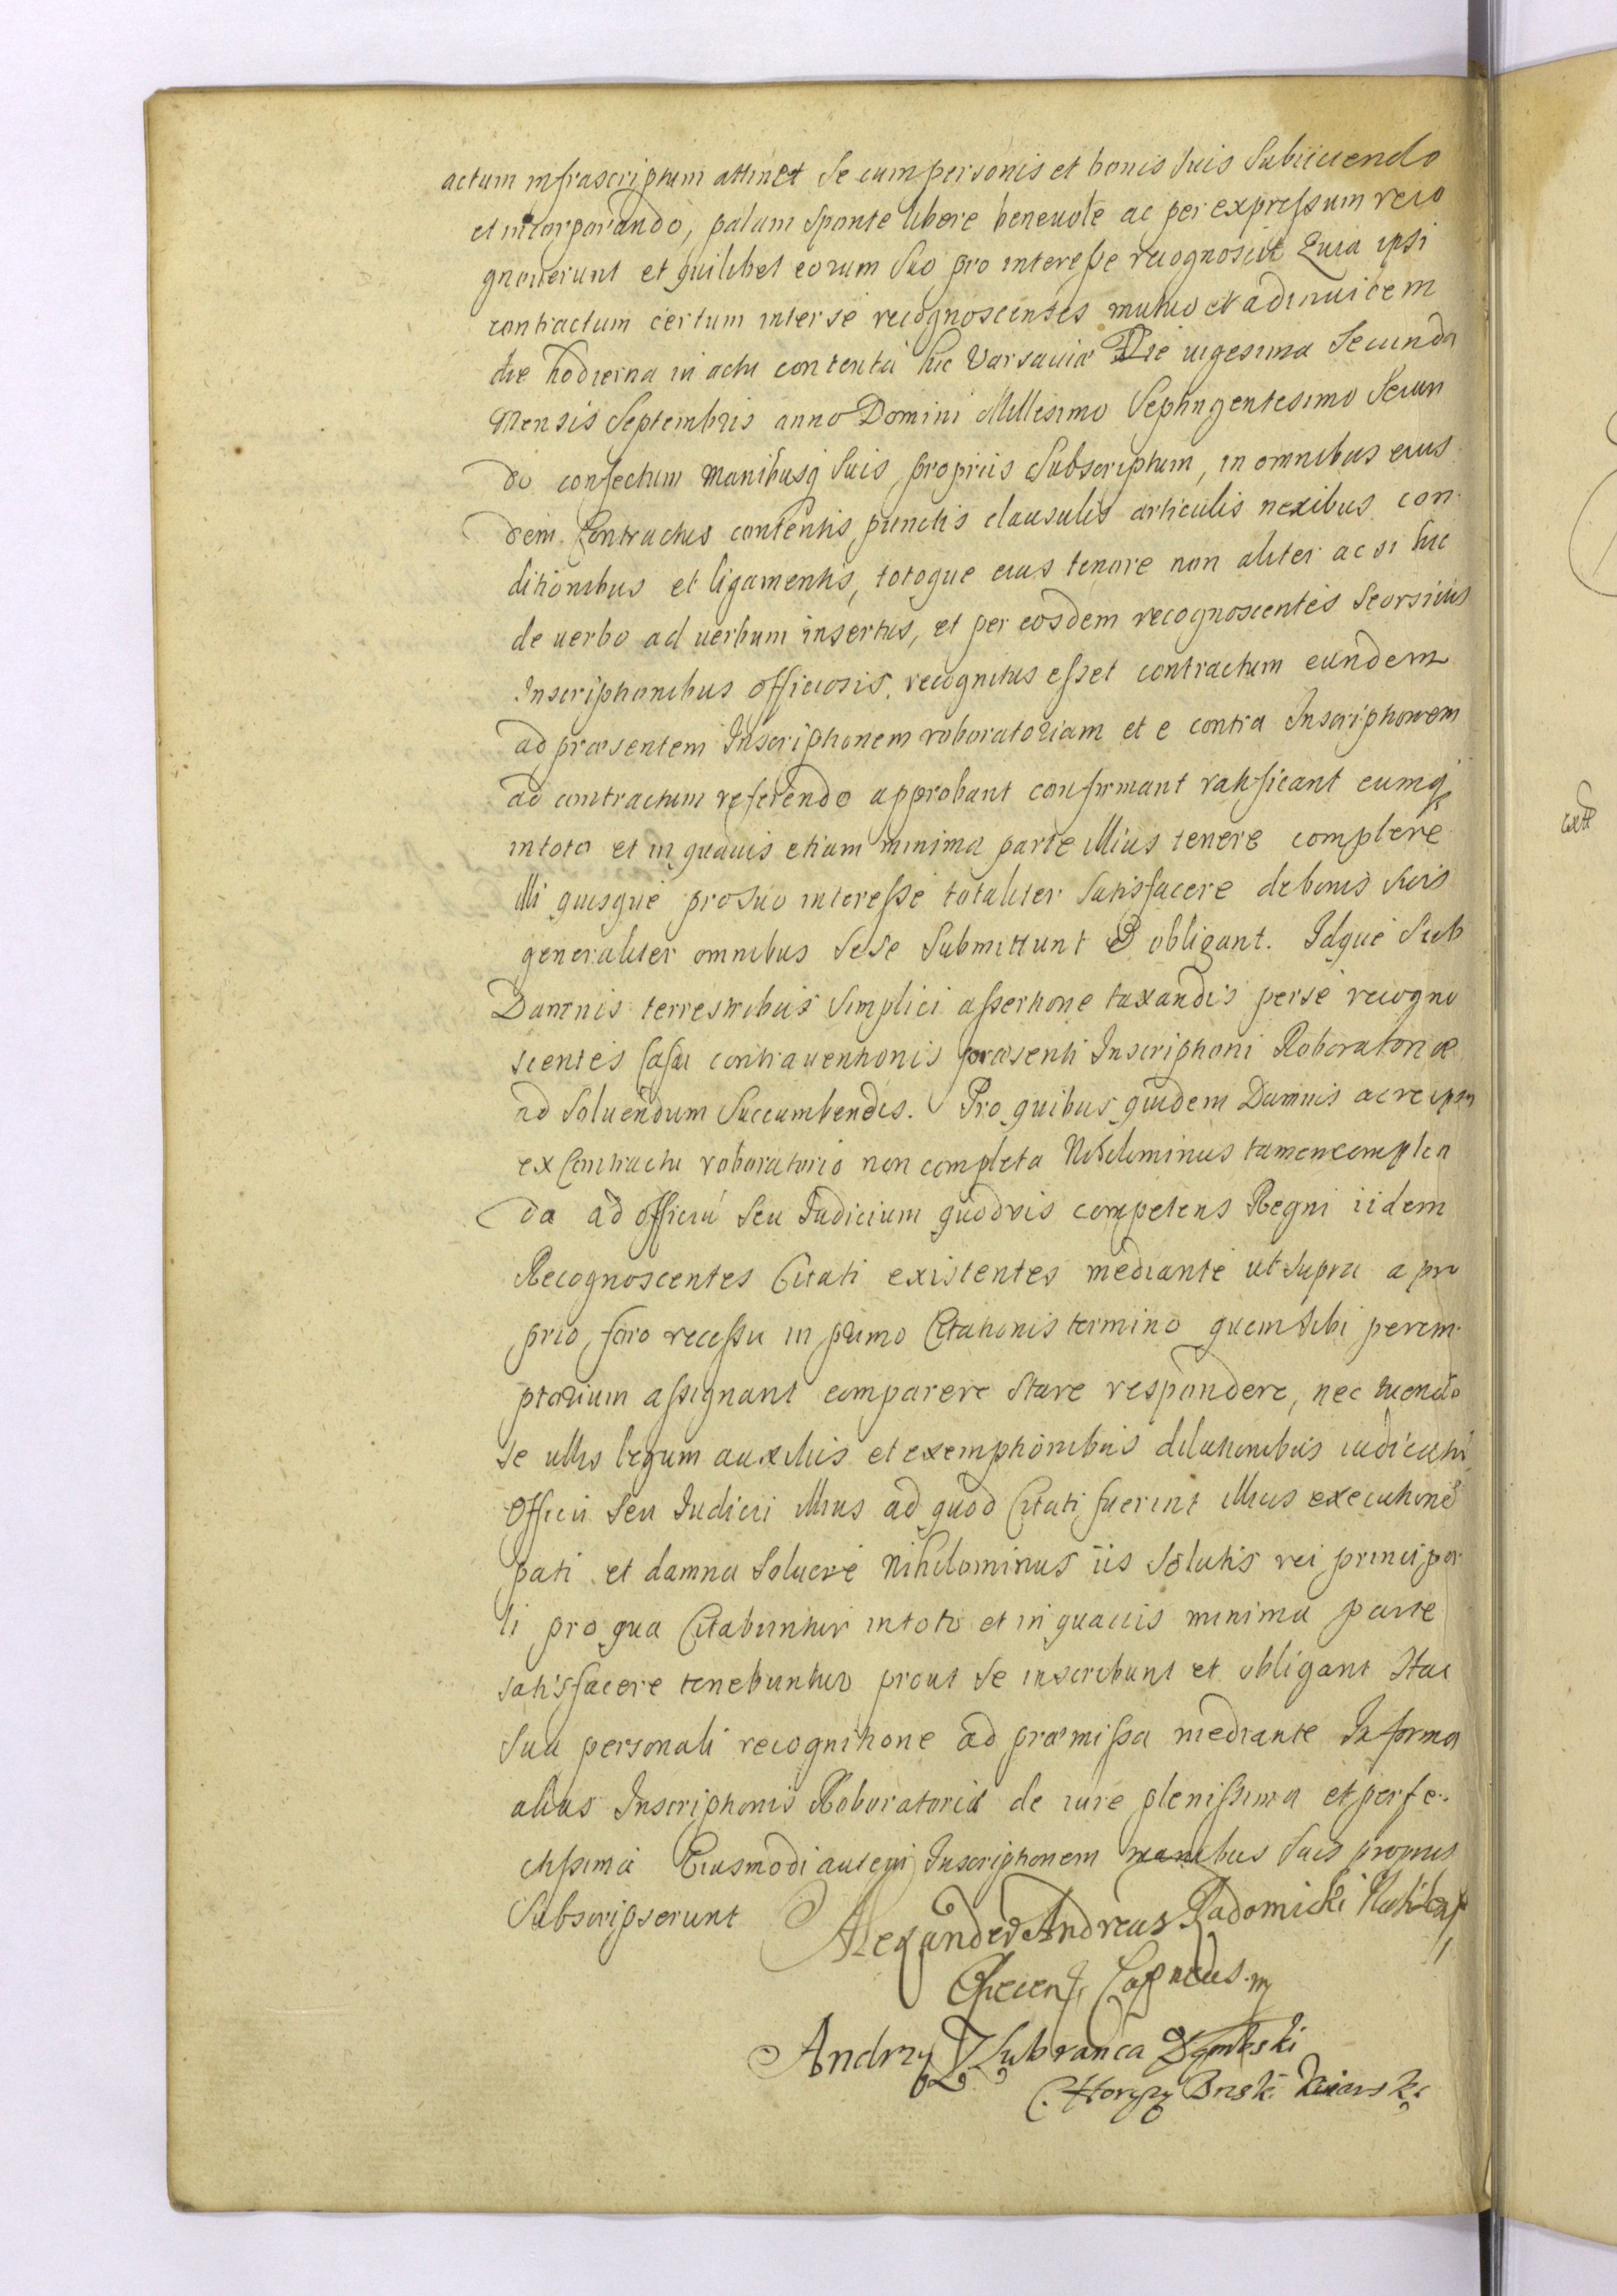 actum infrascriptum attinet Se cum personis et bonis suis Subiiciendo
et incorporando, palam Sponte libere beneuole ac per expressum reco
gnouerunt et quilibet eorum Suo pro interesse recognoscit Quia ipsi
contractum certum inter se recognoscentes mutuo et adinuicem
die hodierna in actu contenta hic Varsaviæ Die uigesima Secunda
Mensis Septembris anno Domini Millesimo Septingentesimo Secun
do confectum Manibusq Suis propriis Subscriptum, in omnibus eius
dem Contractus contentis, punctis clausulis articulis nexibus con
ditionibus et ligamentis, totoque eius tenore non aliter ac si hic
de uerbo ad uerbum insertus, et per eosdem recognoscentes Seorsiuis
Inscriptionibus officiosis, recognitus esset contractum eundem
ad præsentem Inscriptionem roboratoriam et e contra Inscriptionem
ad contractum referendo approbant confirmant ratificant eumq
in toto et in quauis etiam minima parte illius tenere complere
illi quisque pro suo interesse totaliter Satisfacere de bonis suis
generaliter omnibus Sese Submittunt & obligant. Idque Sub
Damnis terrestribus Simplici assertione taxandis per se recogno
scentes Casu contrauentionis præsenti Inscriptioni Roboratoriæ
ad Soluendum Succumbendis. Pro quibus quidem Damnis ac re ipsa
ex Contractu roboratorio non completa Nihilominus tamen complen
da ad officiu Seu Judicium quoduis competens Regni iidem
Recognoscentes Citati existentes mediante ut supra a pro
prio, foro recessu in primo Citationis termino quem sibi perem
ptorium assignant comparere Stare respondere, nec tuendo
se ullis legum auxiliis et exemptionibus dilationibus iudicati
Officii Seu Iudicii illius ad quod Citati fuerint illius executione
pati et damna Soluere Nihilominus iis Solutis rei principa
li pro qua Citabuntur in toto et in quauis minima parte
satisfacere tenebuntur prout Se inscribunt et obligant Hac
Sua personali recognitione ad præmissa mediante In forma
alias Inscriptionis Roboratoriæ de iure plenissima et perfe
ctissima Eiusmodi autem Inscriptionem manibus Suis propriis
Subscripserunt
Alexander Andreas Radomicki
Andrzy Z Lubrańca Dąmbski
C. Horązy Brsk: Kuiawsk: